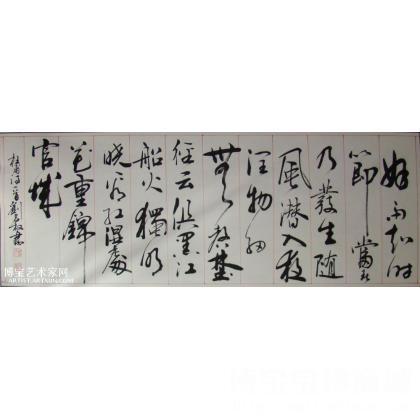 好雨知时
節當春
乃發生随
風潜入夜
润物细
無聲埜
径云俱黑江
船火獨明
晓看红湿處
花重錦
官城
杜甫诗一首劉
書
博宝艺术家网
ARTIST.ARTXUN.COM